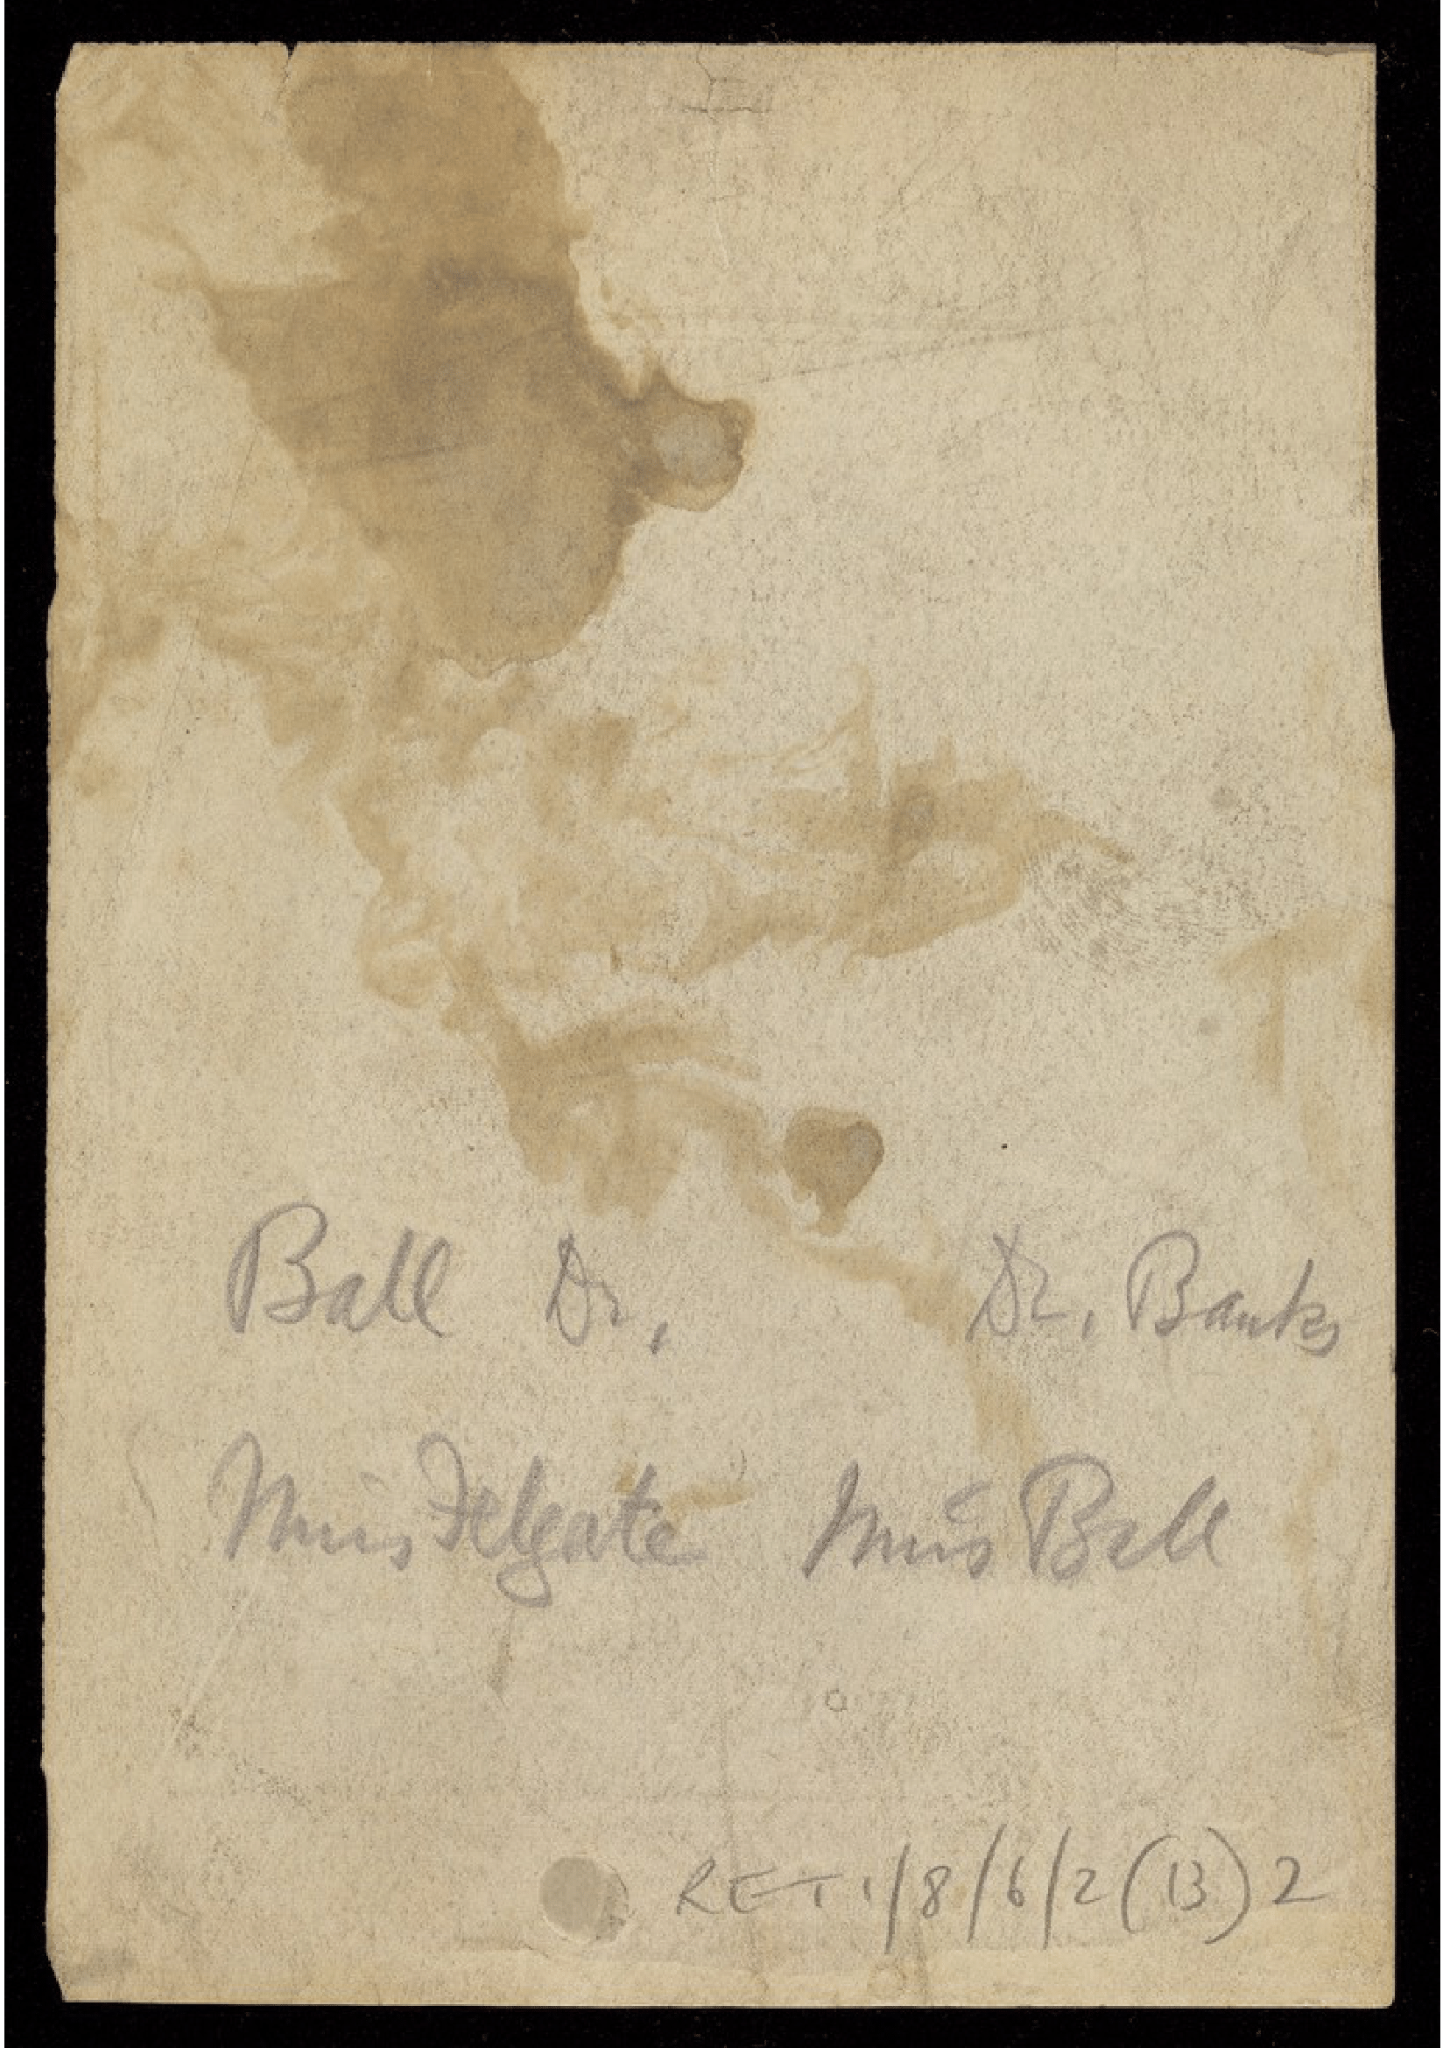 Ball Dr. Dr. Banks
Miss Felgate Miss Ball
RET1/8/6/2(13)2